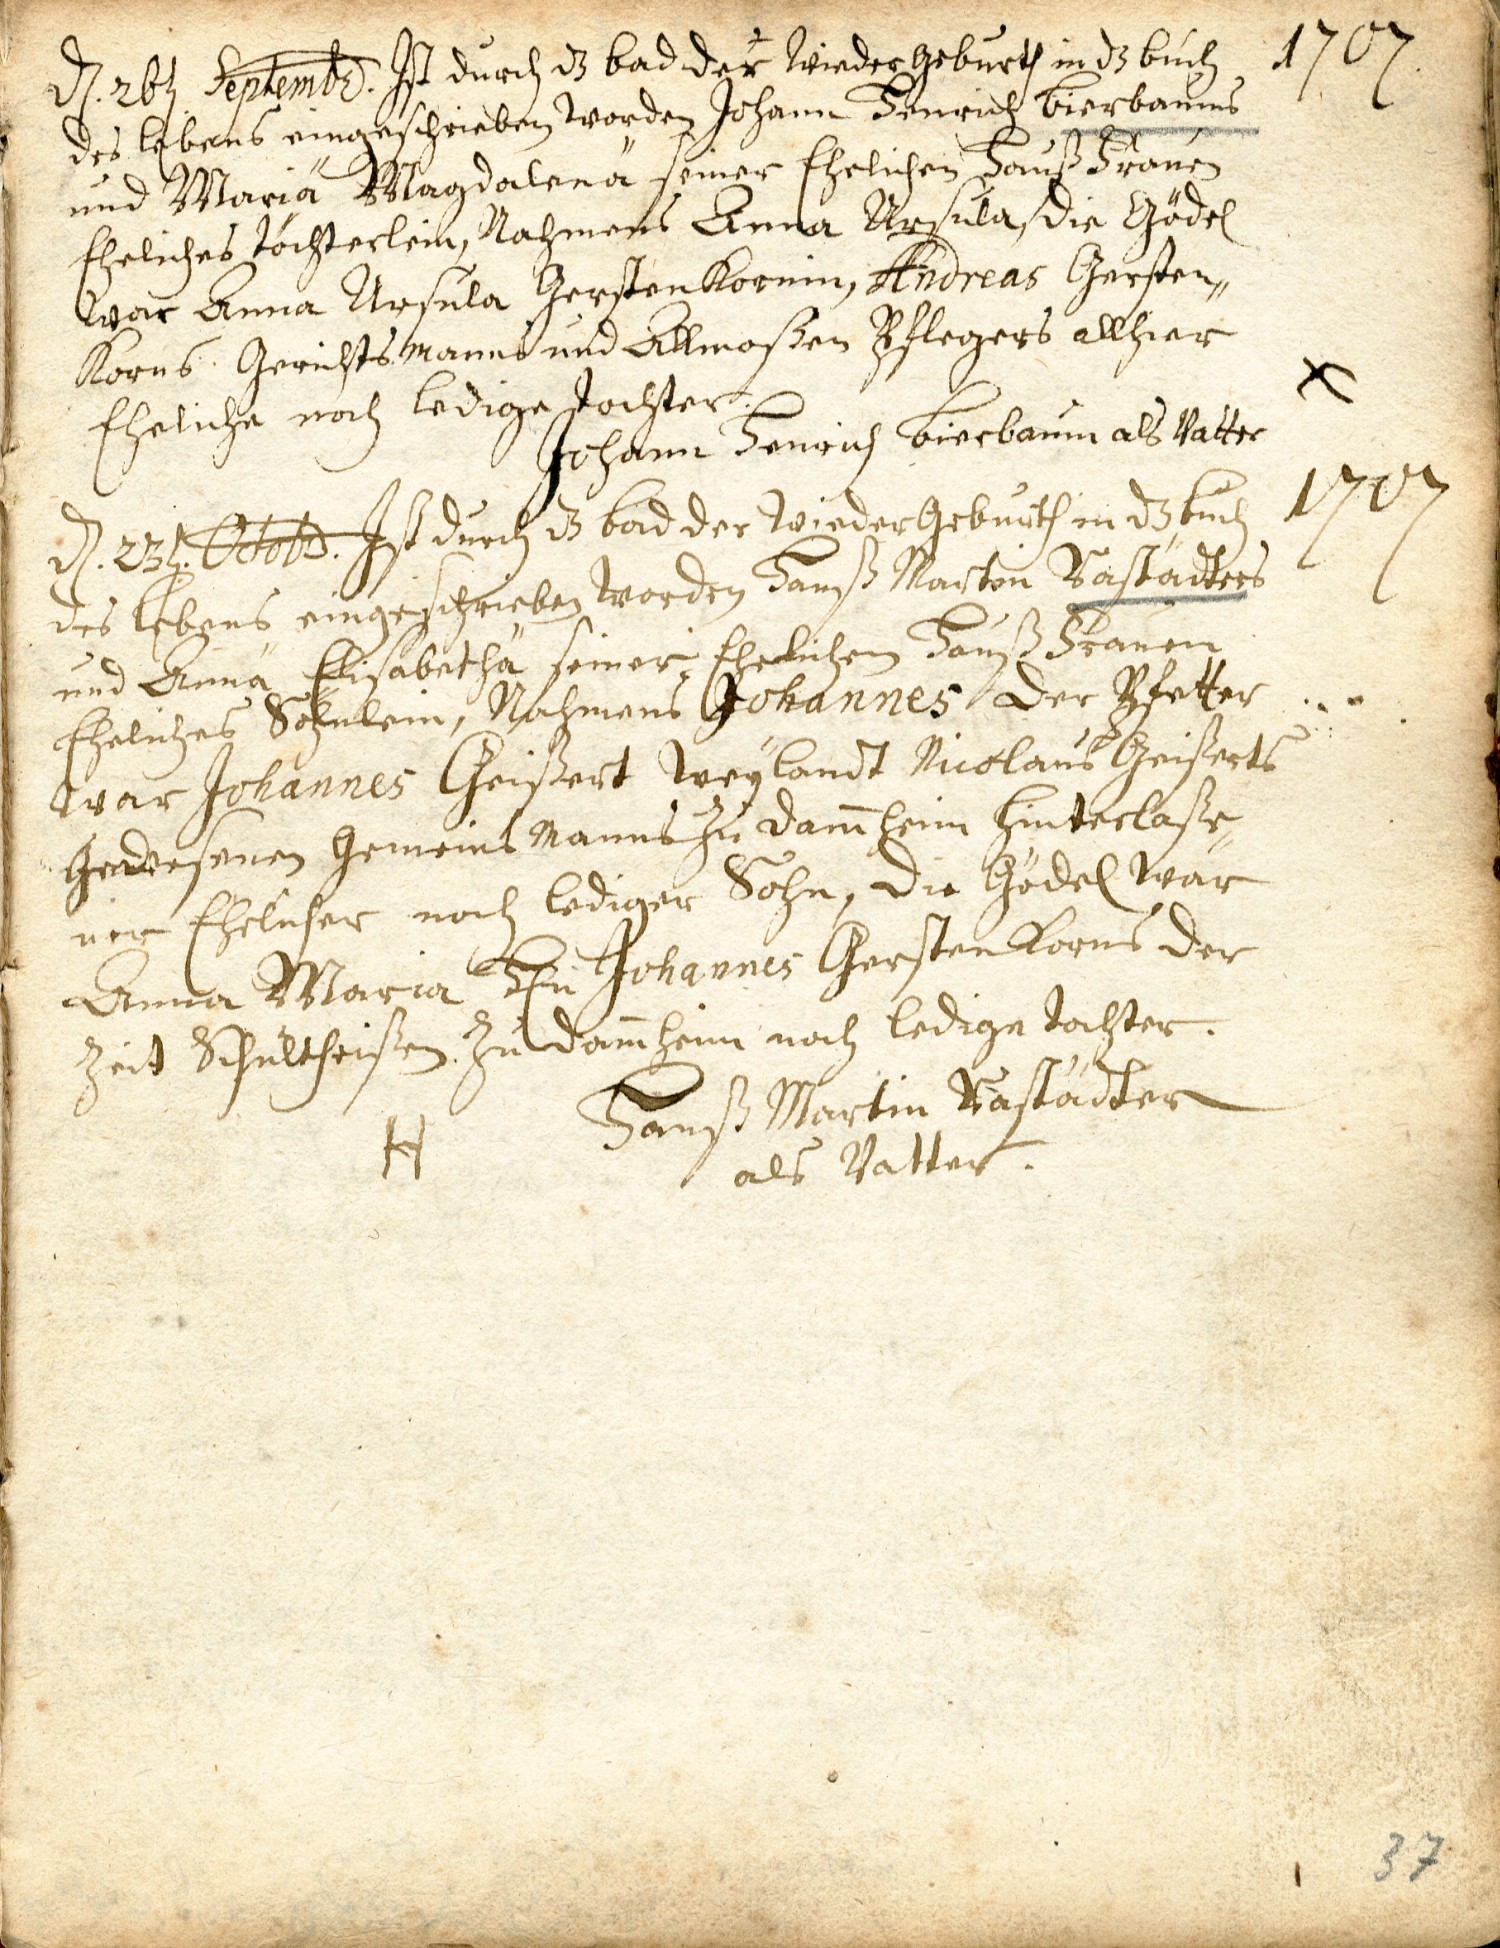 1707.
D. 26t. Septembr. Ist durch dz bad der WiederGeburth in dz buch
des Lebens eingeschrieben worden Johann Henrich Bierbaums
und Mariä Magdalenä seiner Ehelichen Hauß Frauen
Eheliches Töchterlein, Nahmens Anna Ursula, die Gödel
war Anna Ursula GerstenKornin, Andreas Gersten„
Korns Gerichts Manns und Allmoßen Pflegers allhier
Eheliche noch ledige Tochter.
x
Johann Henrich Bierbaum als Vatter
1707
D. 23t. Octobr. Ist durch dz bad der WiederGeburth in dz buch
des Lebens eingeschrieben worden Hanß Martin Rastädters
und Annä Elisabethä seiner Ehelichen Hauß Frauen
Eheliches Söhnlein, Nahmens Johannes der Pfetter
war Johannes Geißert weylandt Nicolaus Geißerts
Gewesenen Gemeins Manns zu Dam̅heim hinterlaße„
ner Ehelicher noch lediger Sohn, die Gödel war
Anna Maria Johannes GerstenKorns der
Zeit Schultheißen zu Dam̅heim noch ledige Tochter.
Hanß Martin Rastädter
H
als Vatter.
37